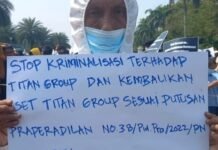 STOP KRIMINALISASI TERHADAP
TITAN GROUP DAN KEMBALIKAN
SET TITAN GROUP SESUAI PUTUSAN
PRAPERADILAN NO 38/Pid.Pra/2022/PN